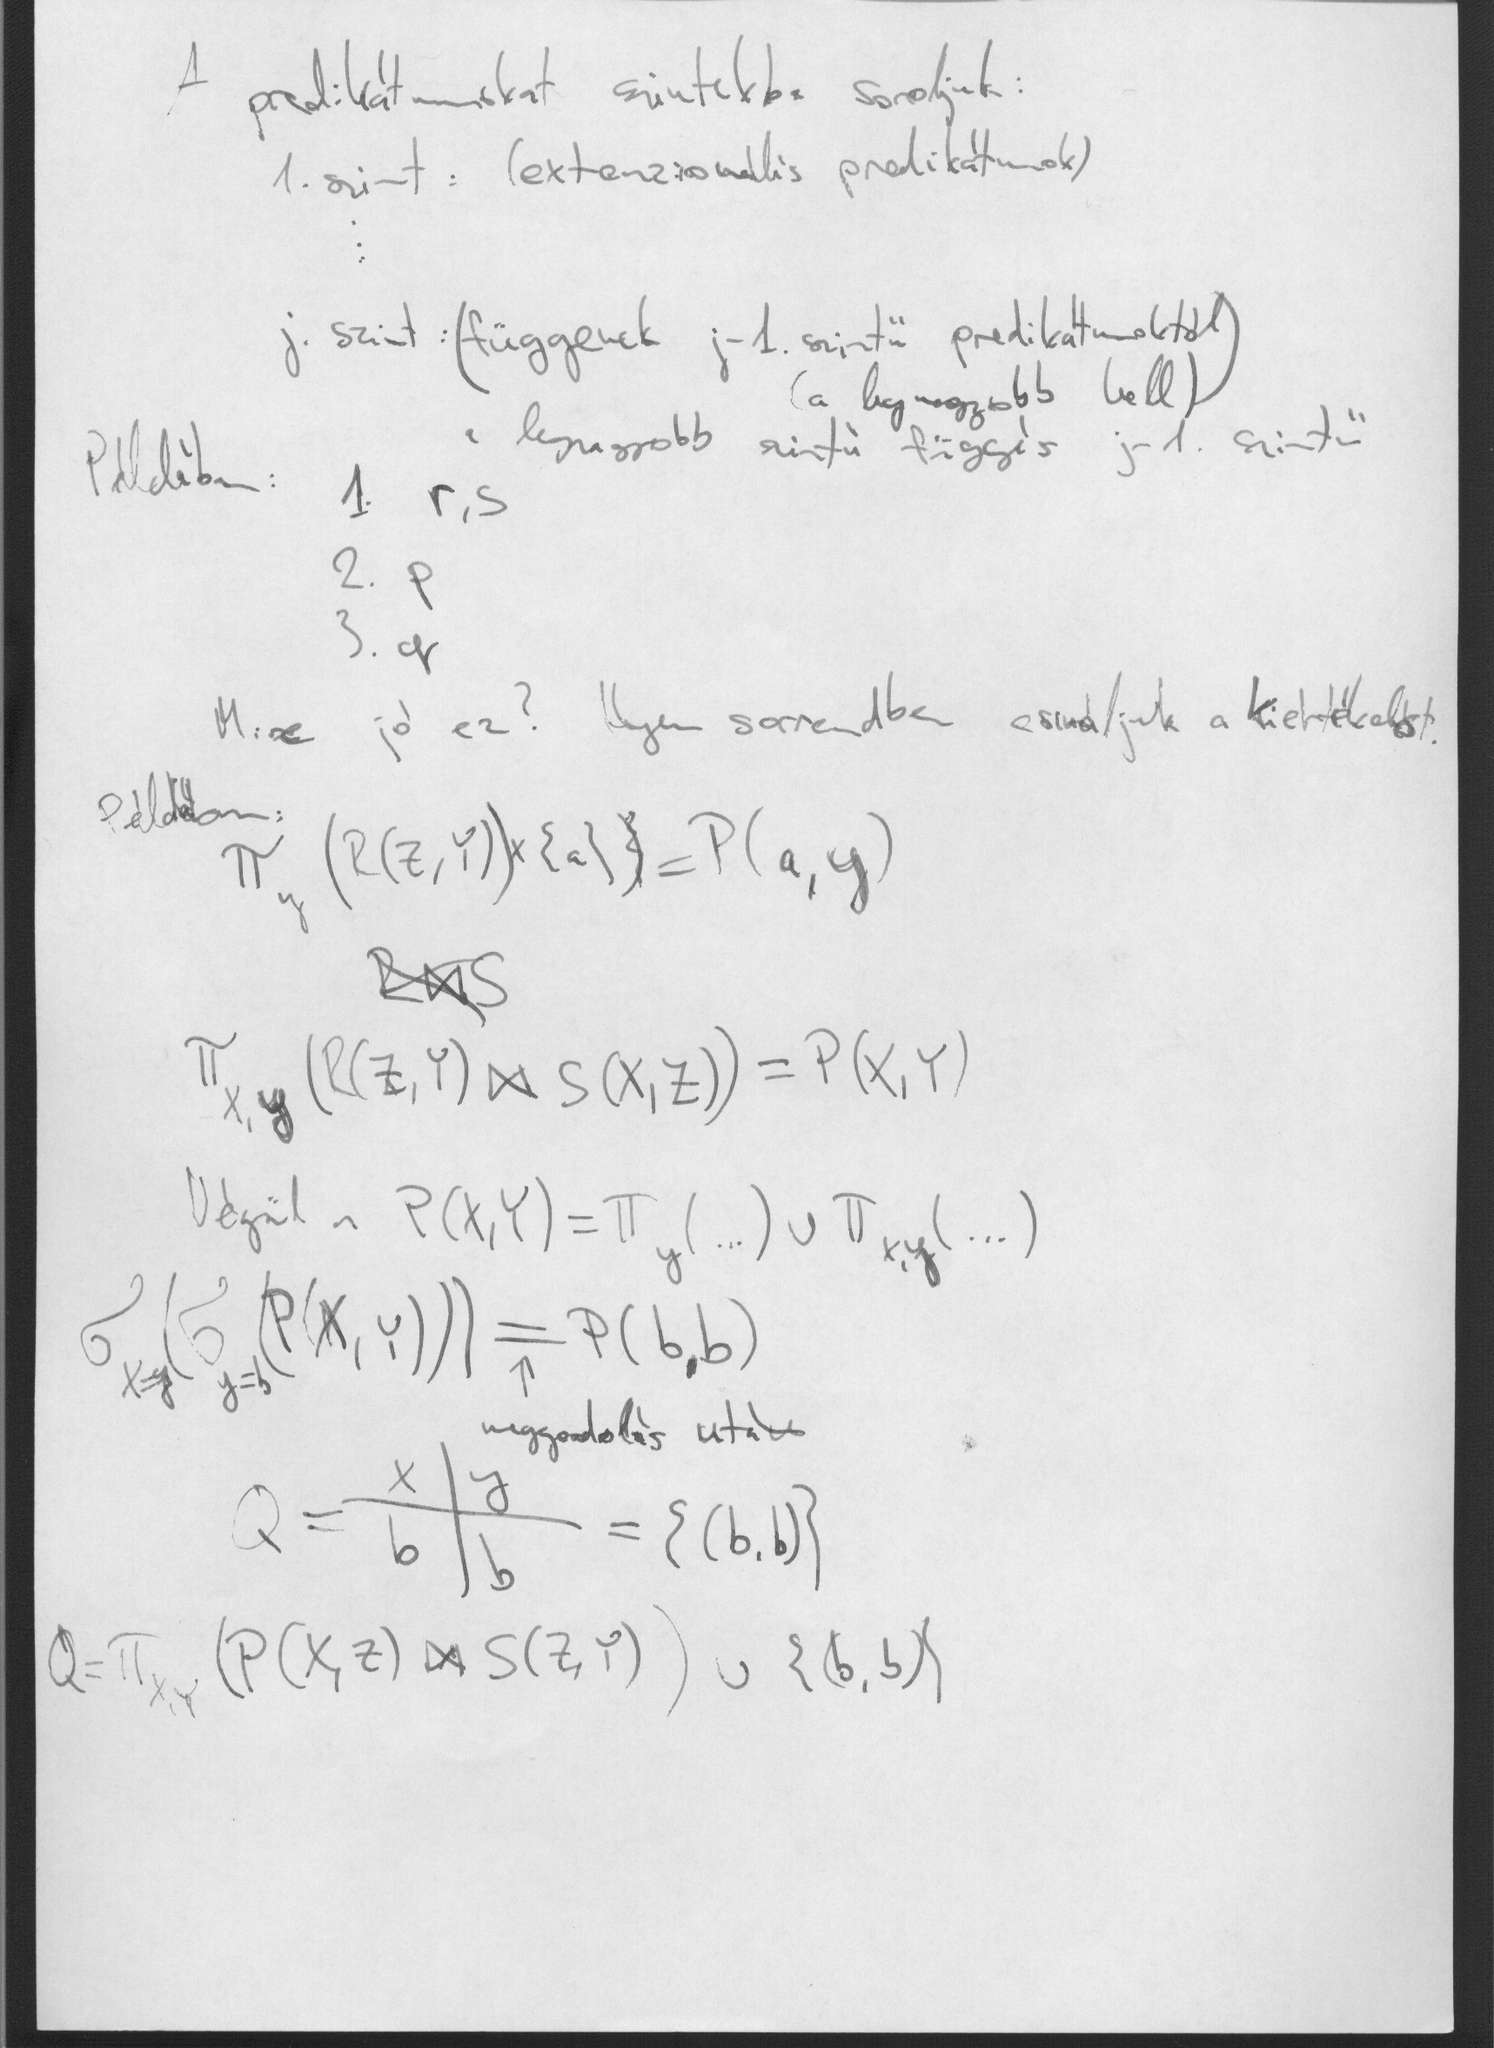 A predikátumokat szintekbe soroljuk:
1. szint: (extenzionális predikátumok)
⋮
j. szint: (függenek j-1. szintű predikátumoktól)
(a legnagyobb kell)
a legnagyobb szintű függés j-1. szintű
Példában:
1. r,s
2. p
3. q
Mire jó ez? Ilyen sorrendben csináljuk a kiértékelést.
Példában:
π_y (R(Z,Y) × {a}) = P(a,y)
π_x,y (R(Z,Y) ⋈ S(X,Z)) = P(X,Y)
Végül a P(X,Y) = π_y(...) ∪ π_x,y(...)
σ_x=y(σ_y=b(P(X,Y))) = P(b,b)
↑
meggondolás után
x | y
Q = b | b = {(b,b)}
Q = π_X,Y (P(X,Z) ⋈ S(Z,Y)) ∪ {(b,b)}